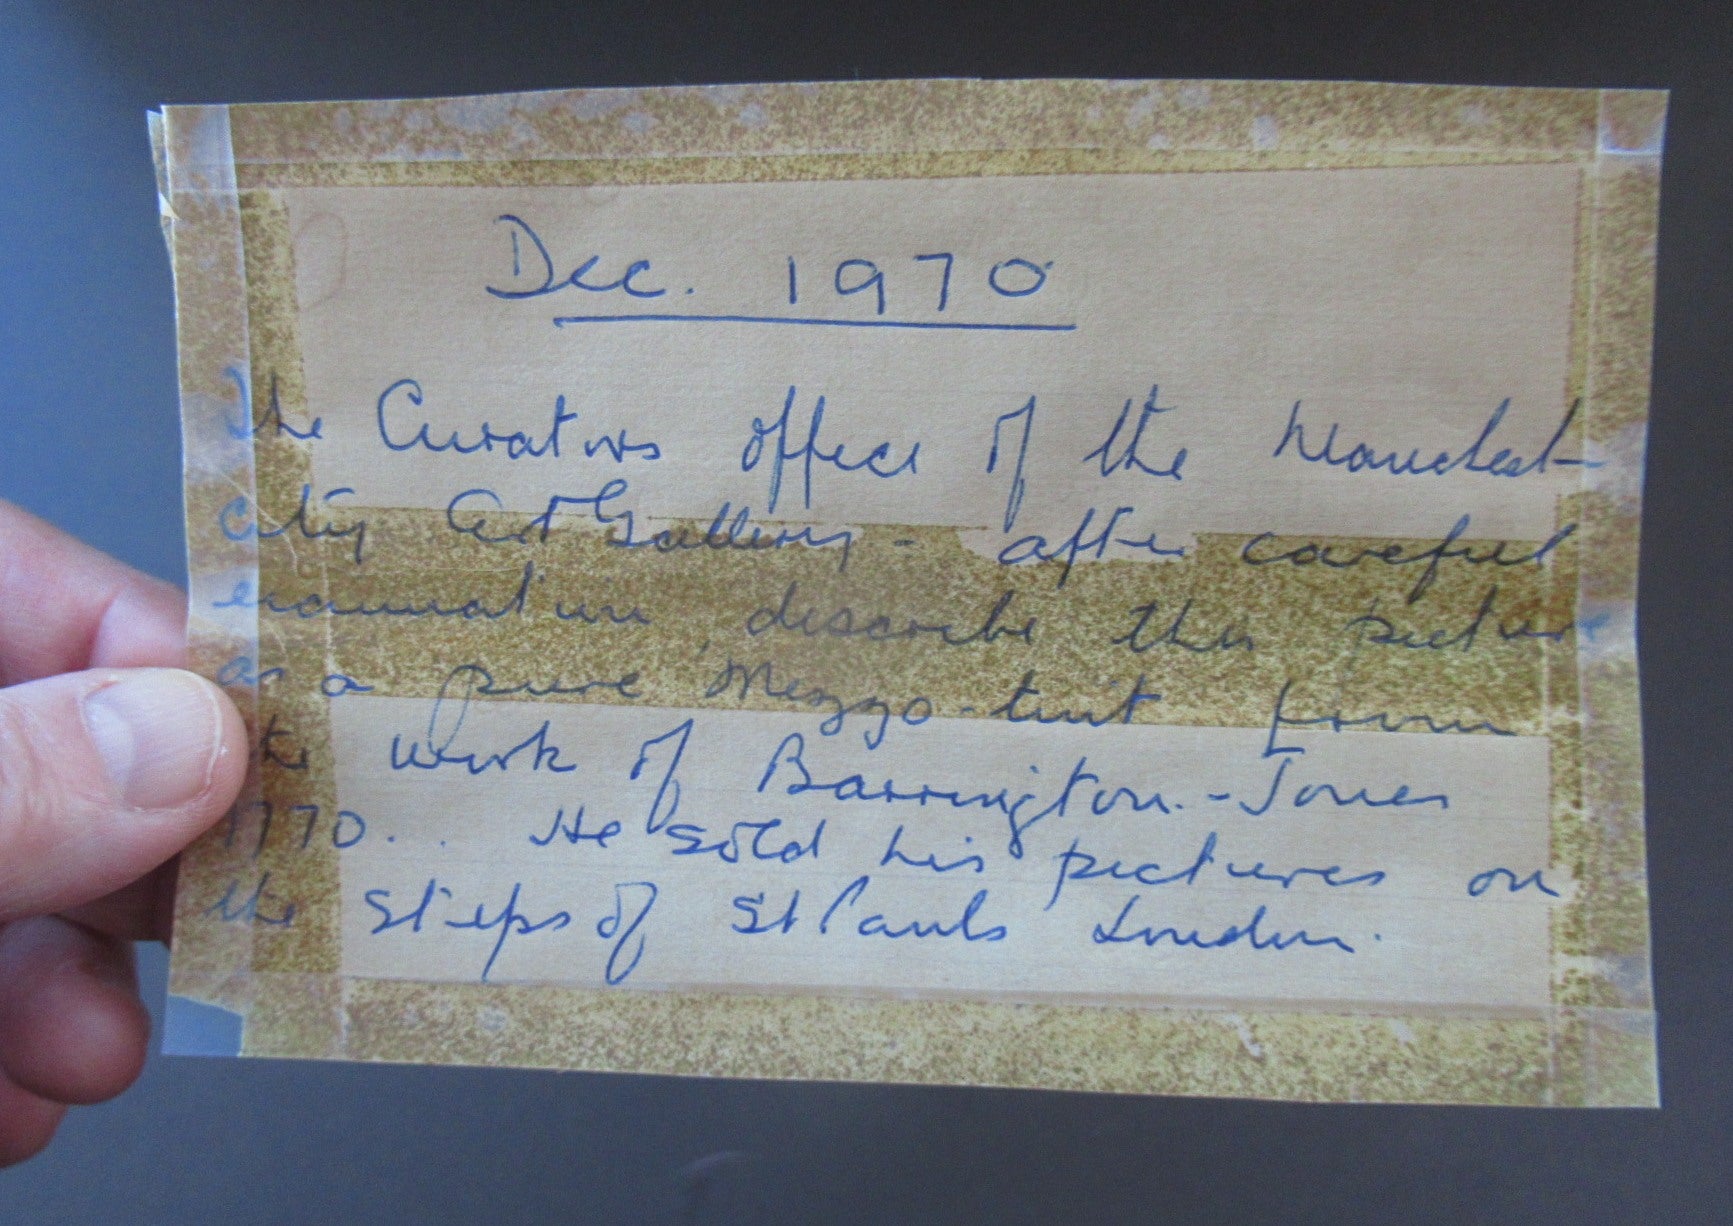 Dec. 1970
The Curators office of the Manchest-
City Art Gallery - after careful
examination, describe this picture
as a pure Mezzo-tint from
the work of Barrington-Jones
1770.. He sold his pictures on
the steps of St Pauls London.